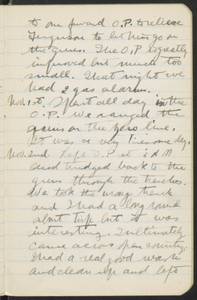 to our forward O.P. to relieve
Ferguson to let him go on
the guns. The O.P. is greatly
improved but much too
small. That night we
had 2 gas alarms.
Nov. 1st. Spent all day in the
O.P. We arranged the
guns on the zero line.
It was a very tiresome day.
Nov. 2nd Left O.P. at 6 AM
and trudged back to the
guns through the trenches.
We took the wrong trench
and I had a long round
about trip but it was
interesting. I ultimately
came across open country.
I had a real good wash
and clean up and left